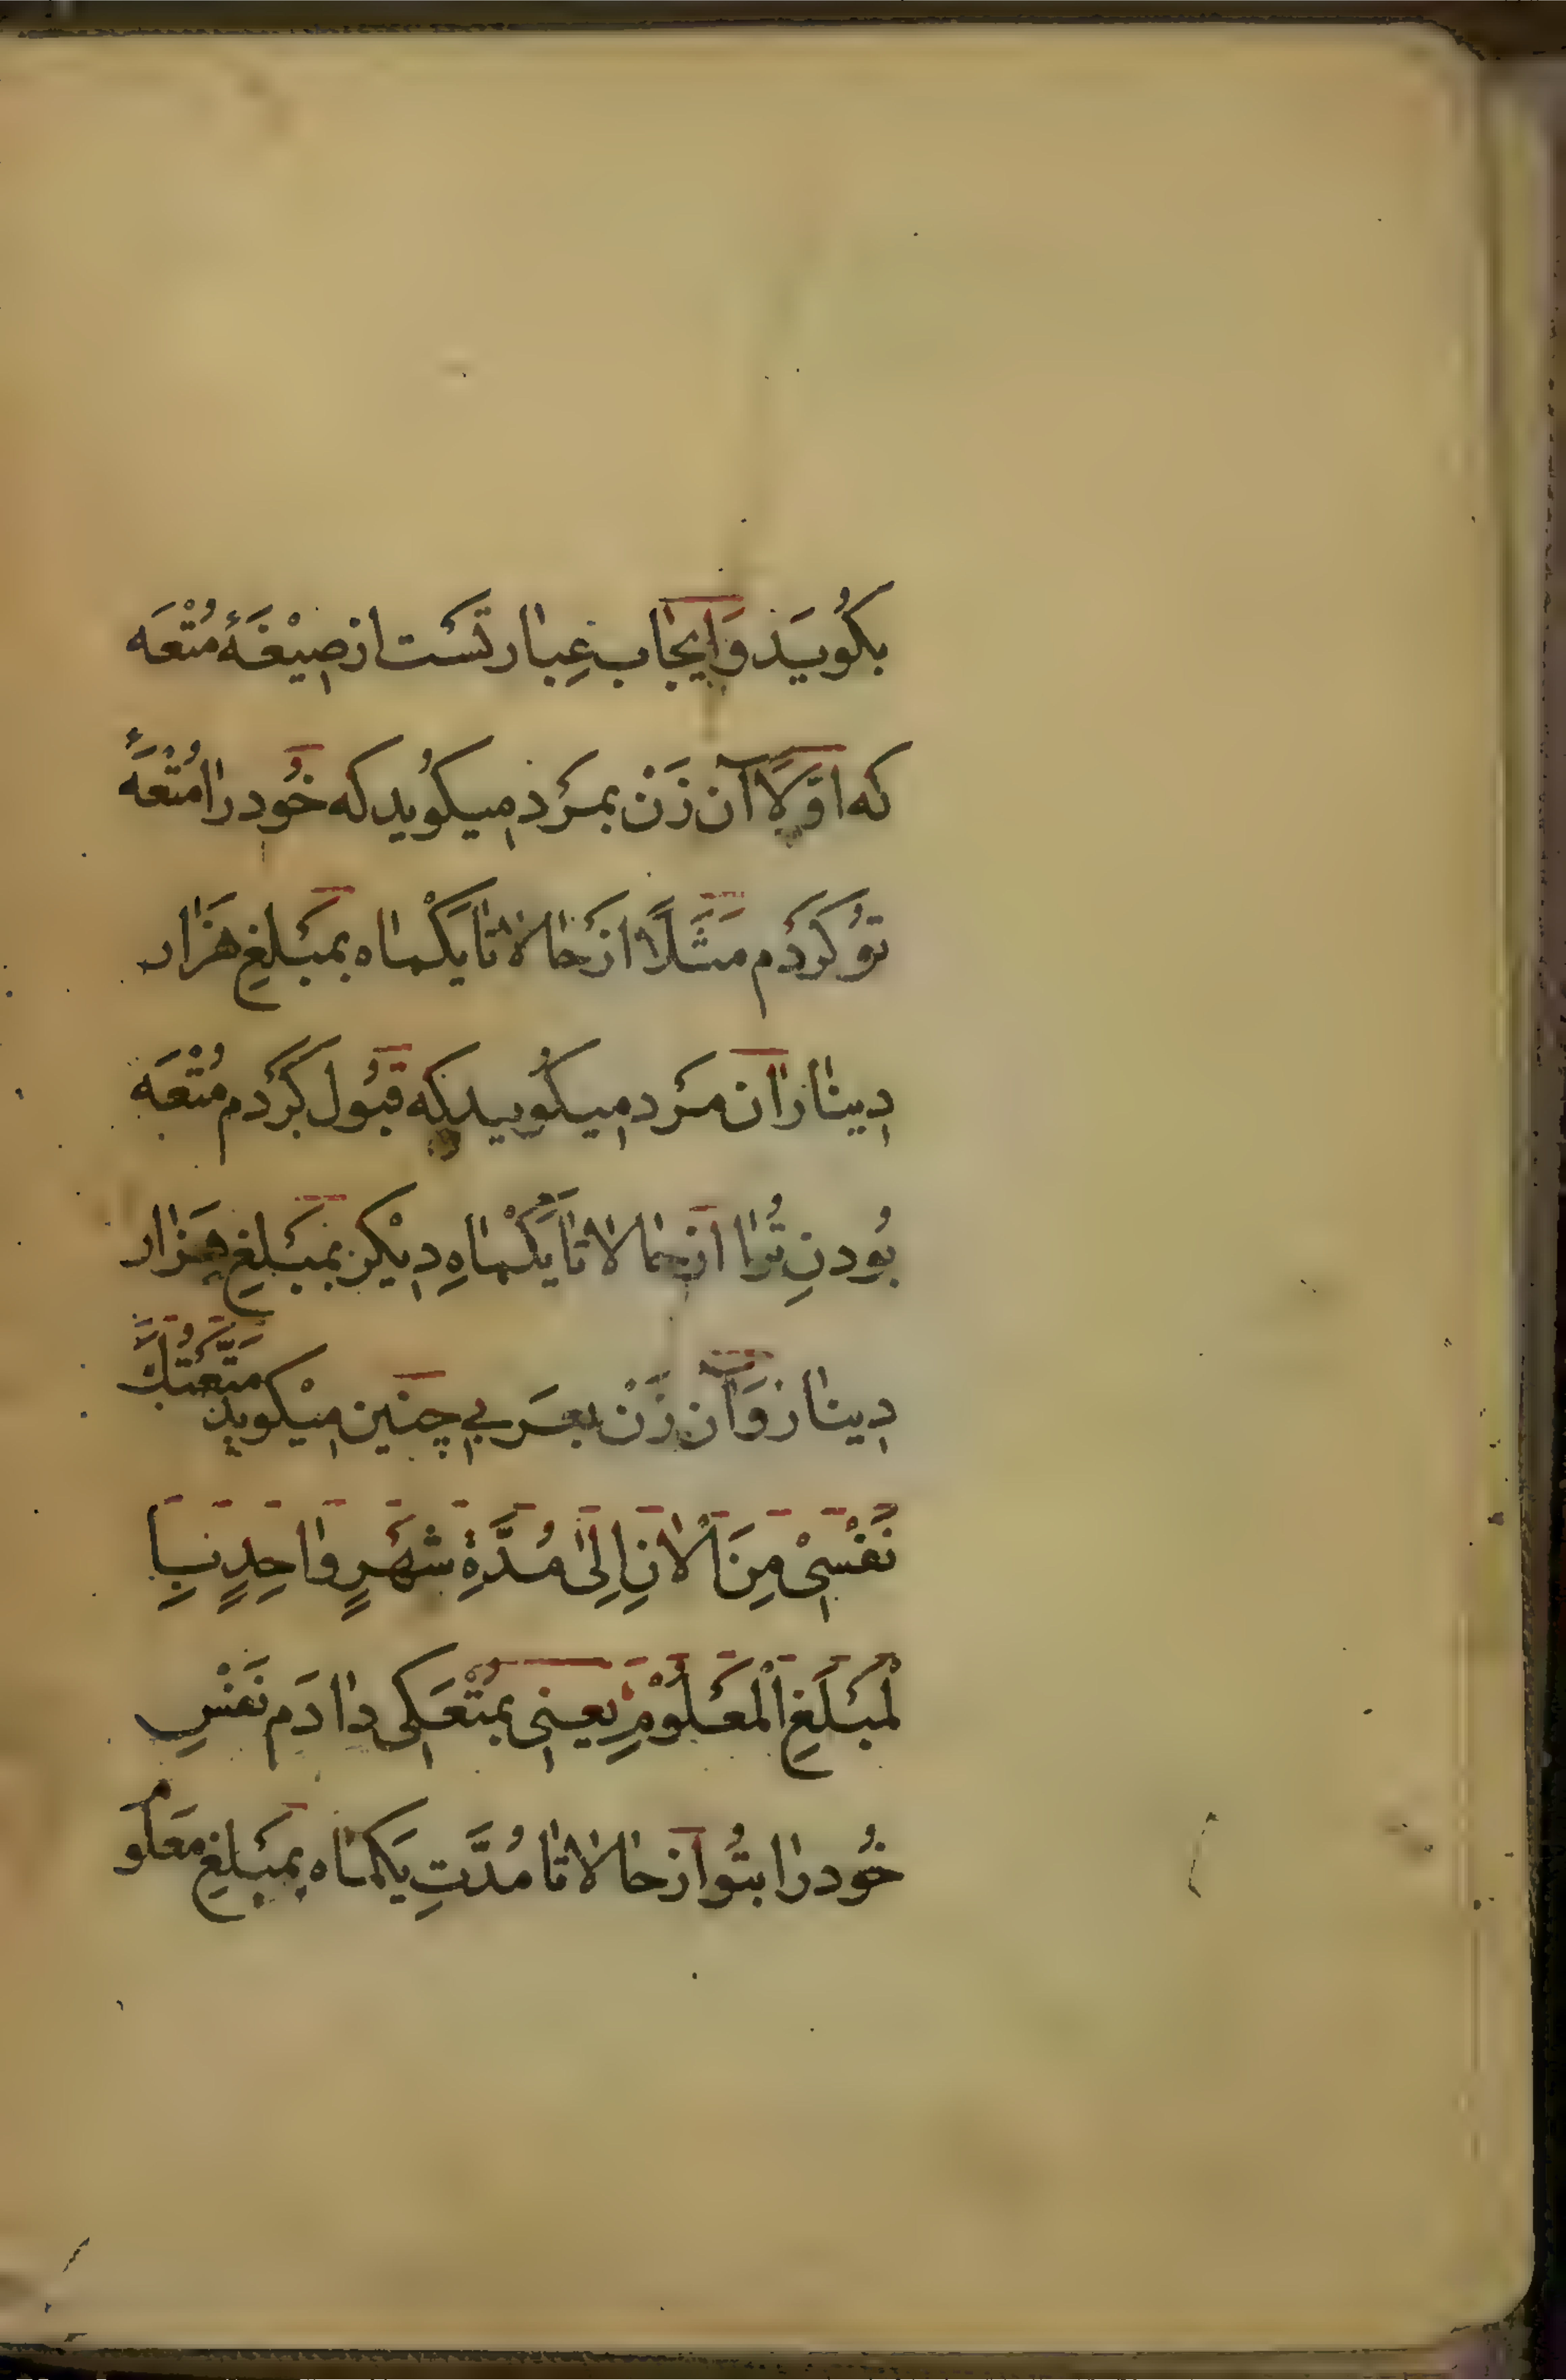 بکُویَد وَایجاب عِبارتَست از صِیْغَهٔ مُتْعَه
که اوّلاً آن زَنْ بمَرد میکوُید که خُود را مُتْعَهٔ
تؤ کَردَم مَثَلاً از حالا تا یَکْماه بمَبلَغِ هَزار
دینار آن مَرد میکوُیید که قبُول کَردَم مُتْعَه
بُودنِ تُرا از حالا تا یَکْماهِ دیْکَر بمَبلَغِ هَزار
دینار وَآن زَنْ بعَربی چنین میْکوید مَتَّعْتُكَ
نَفْسیْ مِنَ اْلانِ اِلیٰ مُدَّةِ شَهْرٍ واحِدٍ نِبِا
لْمَبْلَغِ الْمَعْلُوْمِ یعنی بمُتْعَکی دادَم نَفْسِ
خُود را بتُو از حالا تا مُدَّتِ یَکماه بمَبلَغِ مَعلو
م